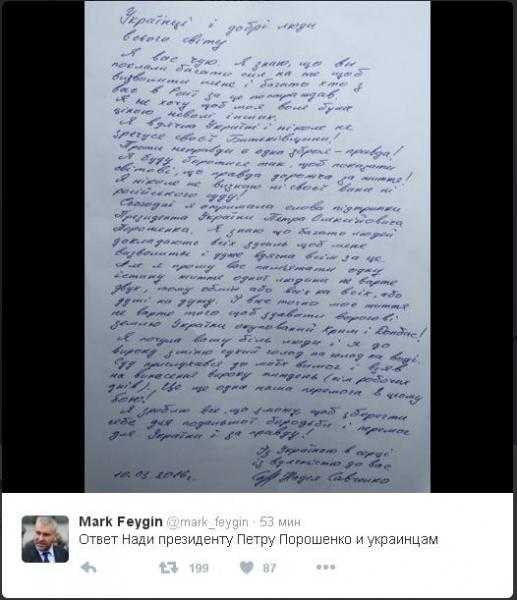 Українці і добрі люди
всього світу
Я вас чую. Я знаю, що ви
поклали багато сил на те щоб
визволити мене і багато хто з
вас в Росії за це постраждав.
Я не хочу щоб моя воля була
ціною неволі інших.
Я вдячна Україні і ніколи не
зречуся своєї Батьківщини!
Проти неправди є одна зброя – правда!
Я буду боротися так, щоб показати
світові, що правда дорожча за життя!
Я ніколи не визнаю ні своєї вини ні
російського суду!
Сьогодні я отримала слова підтримки
Президента України Петра Олексійовича
Порошенка. Я знаю що багато людей
докладають всіх зусиль щоб мене
визволити і дуже вдячна всім за це.
Але я прошу вас пам'ятати одну
істину життя одної людини не варте
двох, тому обмін або всіх на всіх, або
душі на душу. І вже точно моє життя
не варте того щоб здавати ворогові
землю України окупований Крим і Донбас!
Я почула вашу біль люди і я до
вироку зміню сухий голод на голод на воді.
Суд прислухався до моїх вимог і взяв
на винесення вироку тиждень
днів). Це ще одна наша перемога в цьому
бою!
Я зроблю все що зможу, щоб зберегти
себе для подальшої боротьби і перемог
для України і за правду!
Із Україною в серці
із вдячністю до вас
10.03.2016г. Надія Савченко
Mark Feygin @mark_feygin · 53 мин
Ответ Нади президенту Петру Порошенко и украинцам
199 87